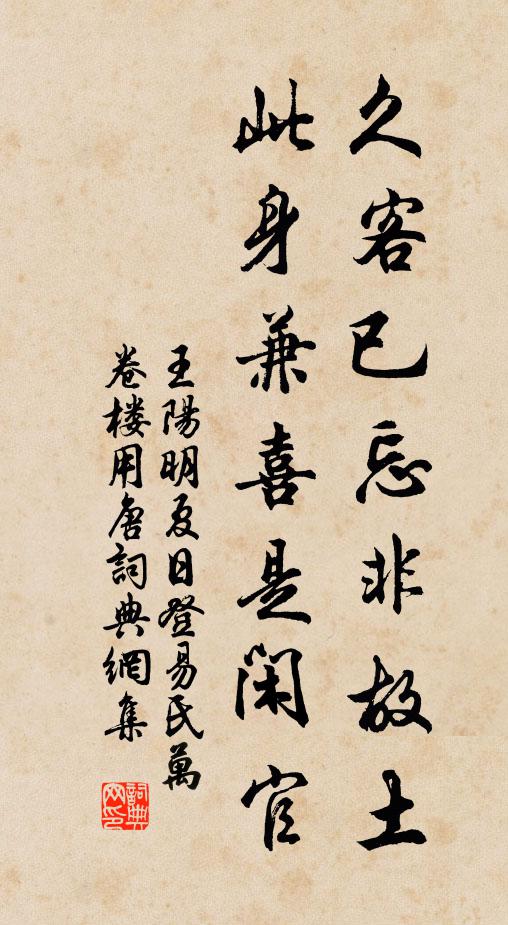 久客已忘非故土
此身兼喜是閑官
王陽明夏日登易氏萬
卷楼用唐詞典網集
詞典网印